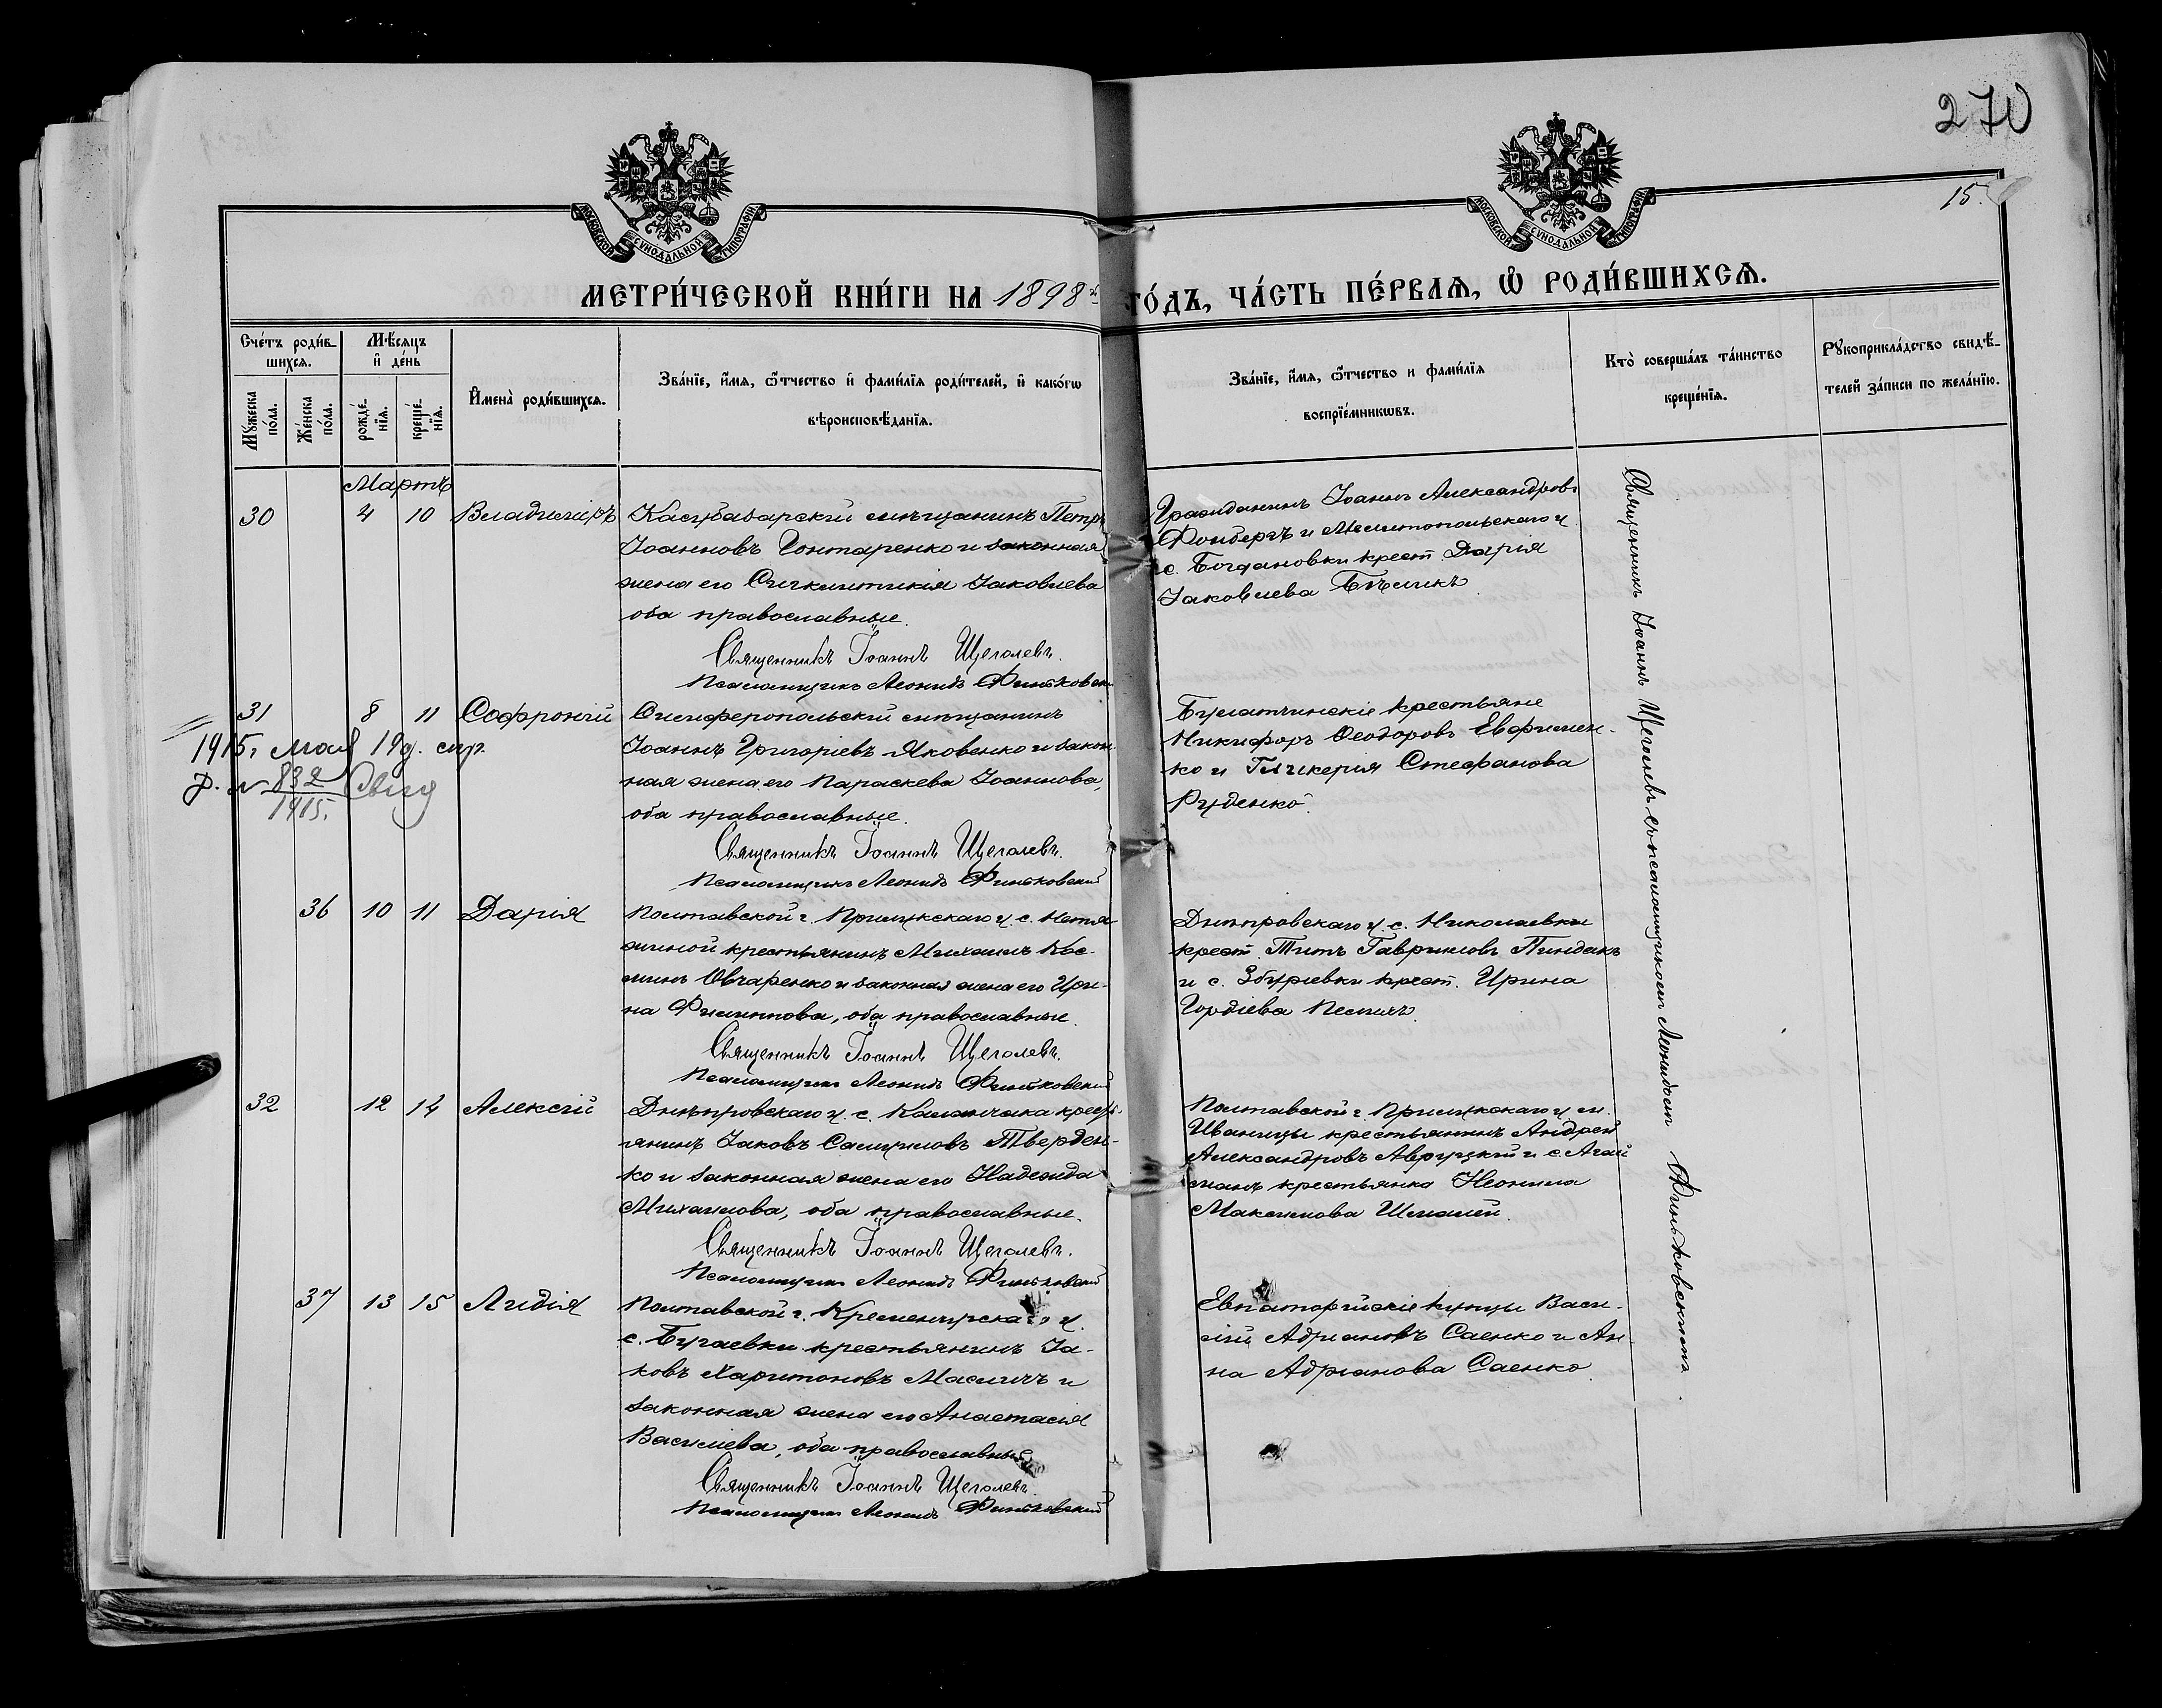 270
15.
МОСКОВСКОЙ СѴНОДАЛЬНОЙ ТИПОГРАФІИ
МОСКОВСКОЙ СѴНОДАЛЬНОЙ ТИПОГРАФІИ
МЕТРИ́ЧЕСКОЙ КНИ́ГИ НА 1898 й ГО́ДЪ, ЧА́СТЬ ПЕ́РВАѦ, Ѽ РОДИ́ВШИХСѦ.
Счетъ роди́в-
шихся.
Мѣсяцъ
и де́нь
Мꙋжеска по́ла.
Же́нска по́ла.
рожде́-
нїя.
креще́-
нїя.
Имена̀ роди́вшихся.
Зва́нїе, и́мя, ѻ́тчество и фами́лїя роди́телей, и како́гѡ
вѣроисповѣ́данїя.
Зва́нїе, и́мя, ѻ́тчество и фами́лїя
воспрїе́мникѡвъ.
Кто̀ соверша́лъ та́инство
креще́нїя.
Рꙋкоприкла́дство свидѣ́-
телей за́писи по жела́нїю.
Мартъ
30 4 10 Владиміръ
Карасубазарскій мѣщанинъ Петръ
Іоанновъ Гонтаренко и законная
жена его Синклитикія Іаковлева
оба православные.
Священникъ Іоаннъ Щеголевъ.
Псаломщикъ Леонидъ Финьковскі
Гражданинъ Іоаннъ Александровъ
Фонбергъ и Мелитопольскаго у.
с. Богдановки крест. Дарія
Іаковлева Бѣликъ
31 8 11 Софроній
1915 г. мая 19 д.
832
1915.
Симферопольскій мѣщанинъ
Іоаннъ Григоріевъ Яковенко и закон-
ная жена его Параскева Іоаннова,
оба православные.
Священникъ Іоаннъ Щеголевъ.
Псаломщикъ Леонидъ Финьковскій
Бугатчинскіе крестьяне
Никифоръ Ѳеодоровъ Евфимен-
ко и Гликерія Стефанова
Руденко.
36 10 11 Дарія
Полтавской г. Прилукскаго у. с.
крестьянинъ Михаилъ Кос-
минъ Овчаренко и законная жена его Ири-
на Филиппова, оба православные.
Священникъ Іоаннъ Щеголевъ.
Псаломщикъ Леонидъ Финьковскій
Днѣпровскаго у. с. Николаевки
крест. Титъ Гавриловъ Пиндакъ
и с. Збурьевки крест. Ирина
Гордіева
32 12 14 Алексій
Днѣпровскаго у. с. Каланчака крест-
янинъ Іаковъ Самуиловъ Твердen-
ко и законная жена его Надежда
Михаилова, оба православные.
Священникъ Іоаннъ Щеголевъ.
Псаломщикъ Леонидъ Финьковскій
Полтавской г. Прилукскаго у. м.
Иваницы крестьянинъ Андрей
Александровъ Авруцкій и с. Агай
манъ крестьянка Неонила
Максимова Шемалей
37 13 15 Лидія
Полтавской г. Кременчугскаго у.
с. Бугаевки крестьянинъ Іа-
ковъ Харитоновъ Масличъ и
законная жена его Анастасія
Василіева, оба православные
Священникъ Іоаннъ Щеголевъ.
Псаломщикъ Леонидъ Финьковскій
Евпаторійскіе купцы Васи-
лій Адріановъ Саенко и Ан-
на Адріанова Саенко.
Священникъ Іоаннъ Щеголевъ съ псаломщикомъ Леонидомъ Финьковскимъ.